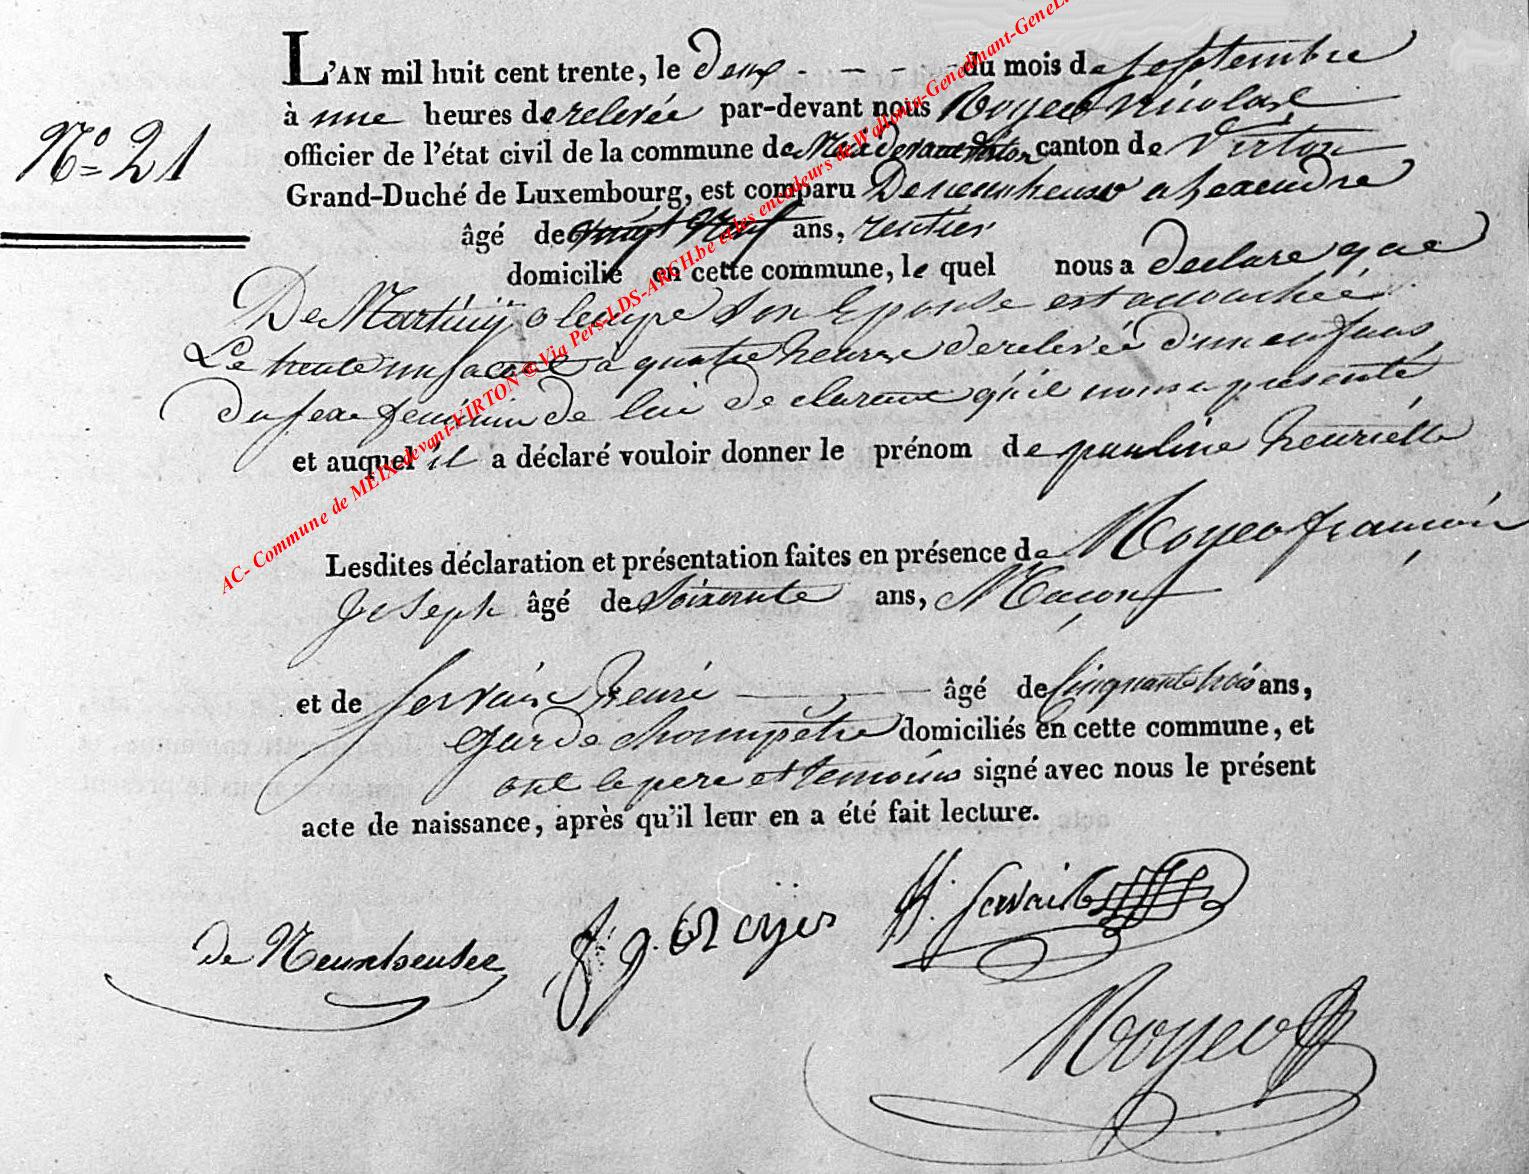 N° 21
L'AN mil huit cent trente, le deux - - - - du mois de septembre
à une heures de relevée par-devant nous Royer nicolas
officier de l'état civil de la commune de Meix devant virton, canton de Virton
Grand-Duché de Luxembourg, est comparu Deneunheuser alexendre
âgé de vingt Neuf ans, rentier
domicilié en cette commune, le quel nous a declare que
De Martiny olimpe son Epouse est accouchée
Le trente un aout à quatre heures de relevée d'un enfans
du sexe feminin de lui declarant qu'il nous a presenté
et auquel il a déclaré vouloir donner le prénom de pauline henriette
Lesdites déclaration et présentation faites en présence de Royer françois
Joseph âgé de soixante ans, Maçon
et de Servais henri âgé de Cinquante trois ans,
garde champetre domiciliés en cette commune, et
ont le pere et temoins signé avec nous le présent
acte de naissance, après qu'il leur en a été fait lecture.
de Neunheuser f. j. Royer H. Servais
Royer
AC- Commune de MEIX-devant-VIRTON © Via Pers-LDS-ARCH.be et les encodeurs de Wallonia-Genedinant-GeneL